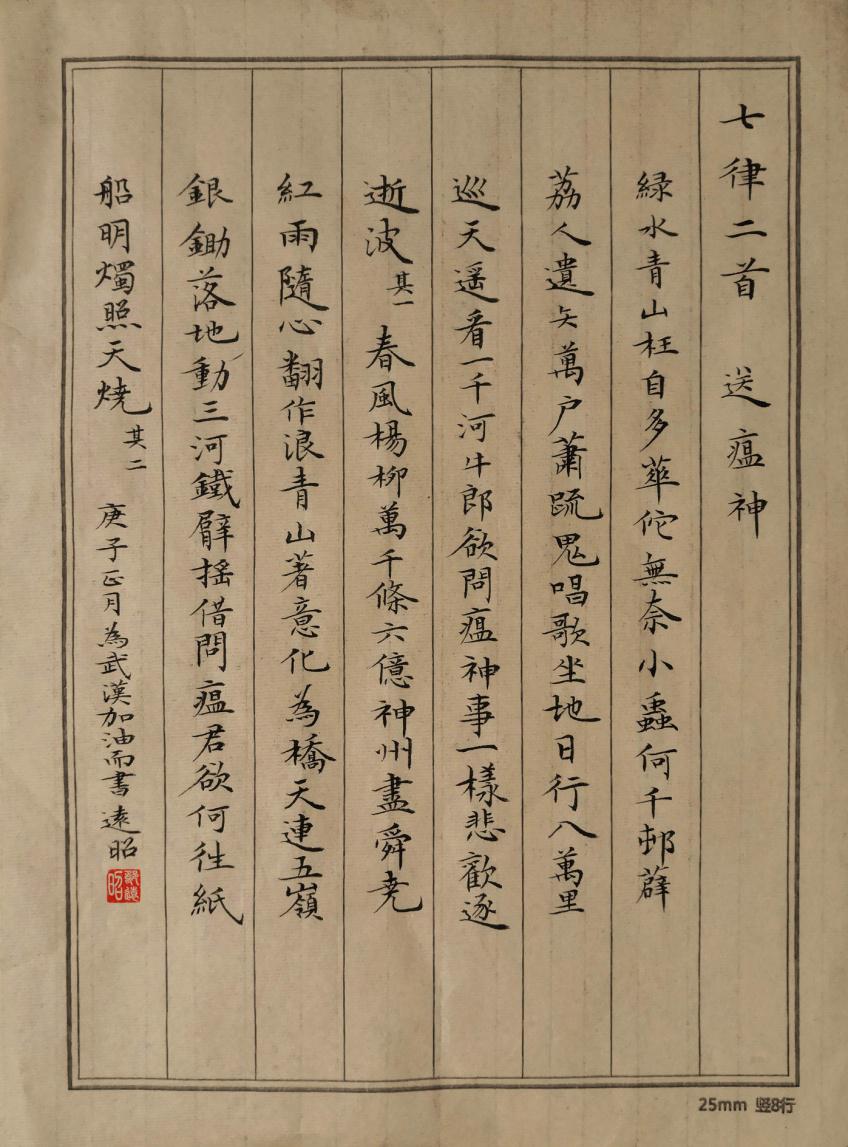 七律二首 送瘟神
緑水青山枉自多華佗無奈小蟲何千邨薜
荔人遺矢萬户蕭疏鬼唱歌坐地日行八萬里
巡天遥看一千河牛郎欲問瘟神事一樣悲歡逐
逝波其一春風楊柳萬千條六億神州盡舜堯
紅雨隨心翻作浪青山著意化為橋天連五嶺
銀鋤落地動三河鐵臂摇借問瘟君欲何往紙
船明燭照天燒其二 庚子正月為武漢加油而書遠昭
25mm 竖8行